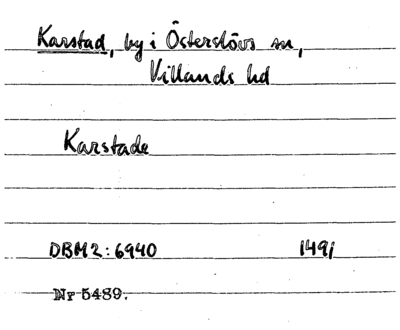 Karstad, by i Österslövs sn,
Villands hd
Karstade
DBM2:6940 1491
Nr 5489.